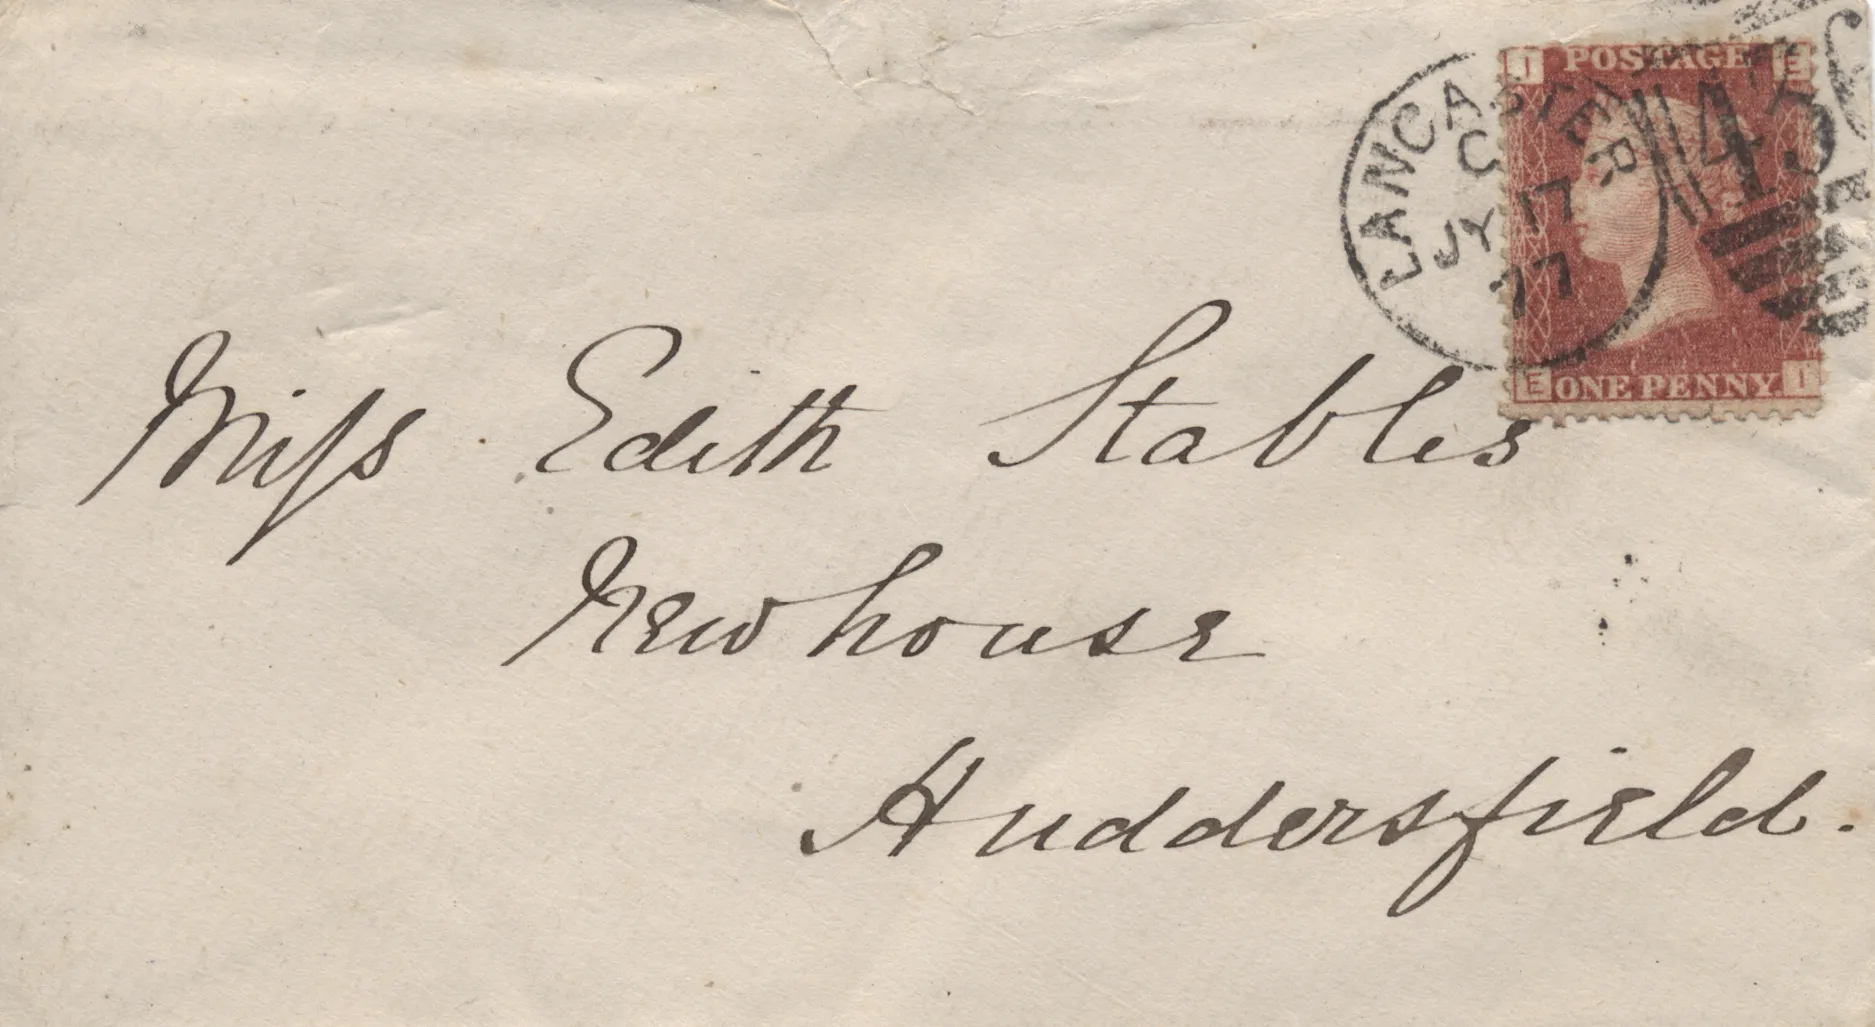 I POSTAGE E
LANCASTER
C
JY 17
77
E ONE PENNY I
Miss Edith Stables
Newhouse
Huddersfield.